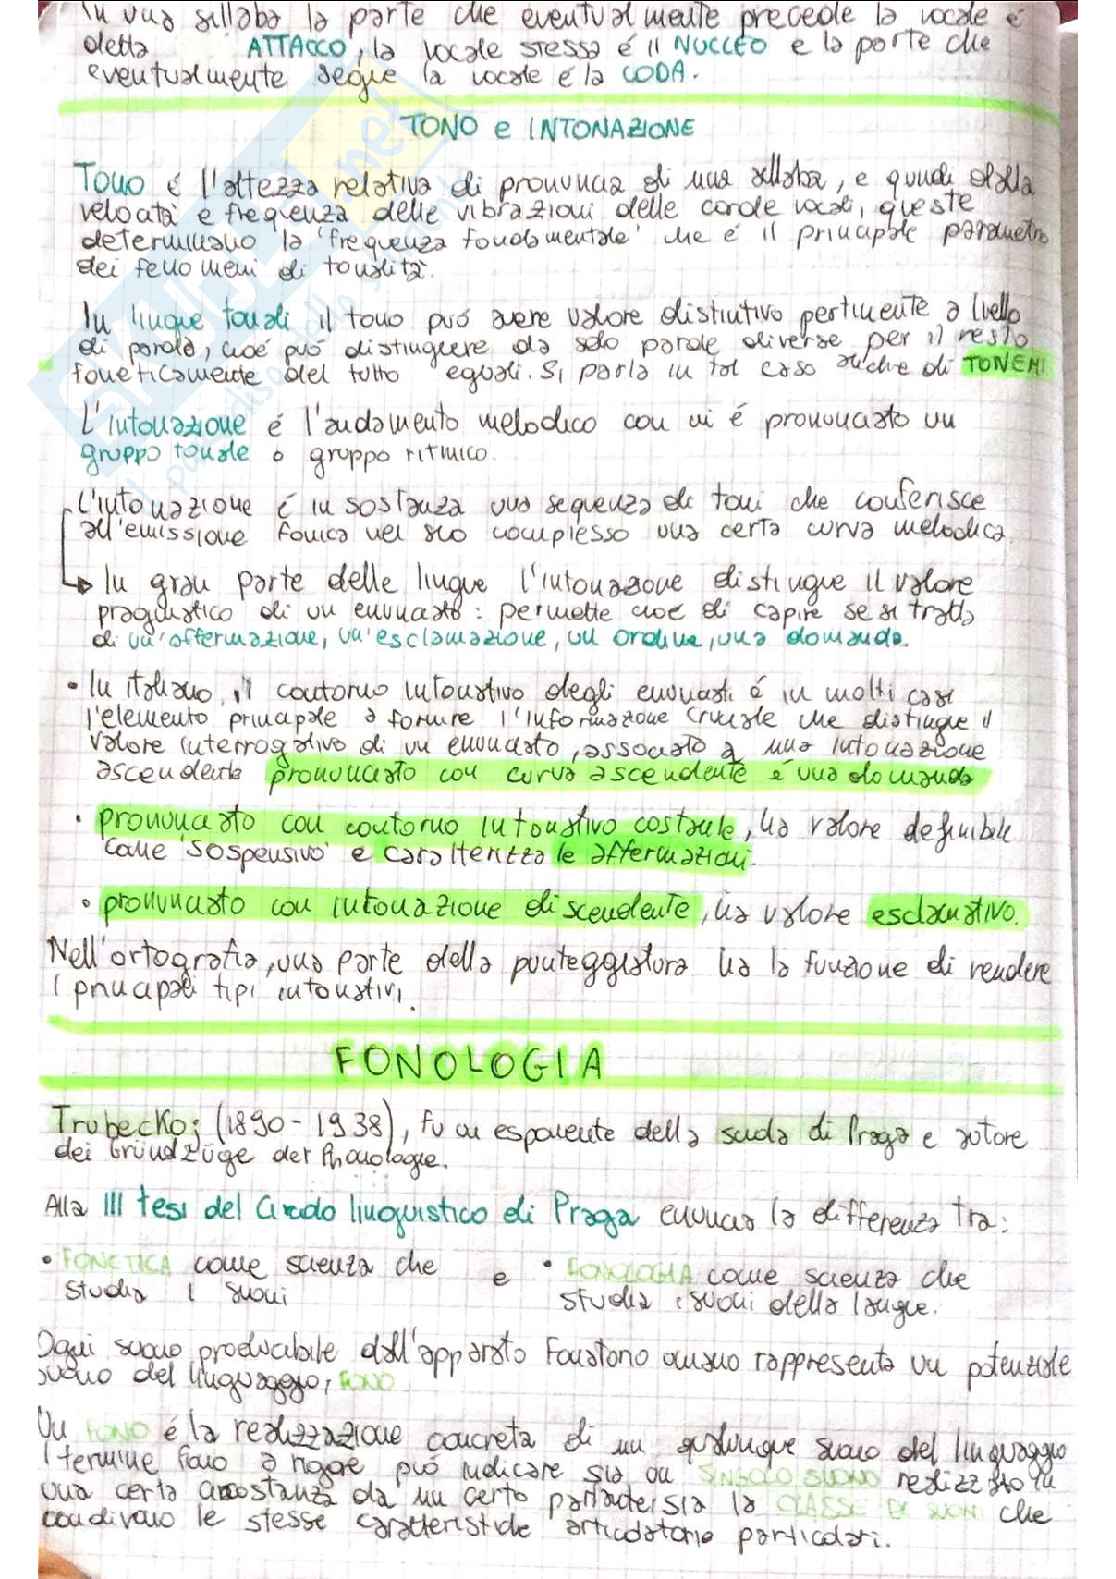 In una sillaba la parte che eventualmente precede la vocale è
detta ATTACCO, la vocale stessa é il NUCLEO e la parte che
eventualmente segue la vocale é la CODA.
TONO e INTONAZIONE
Tono é l'altezza relativa di pronuncia di una sillaba, e quindi dalla
velocità e frequenza delle vibrazioni delle corde vocali, queste
determinano la 'frequenza fondamentale' che é il principale parametro
dei fenomeni di tonalità.
In lingue tonali il tono può avere valore distintivo pertinente a livello
di parola, cioé può distinguere da solo parole diverse per il resto
foneticamente del tutto eguali. Si parla in tal caso anche di TONEMI
L'intonazione é l'andamento melodico con cui é pronunciato un
gruppo tonale o gruppo ritmico.
L'intonazione é in sostanza una sequenza di toni che conferisce
all'emissione fonica nel suo complesso una certa curva melodica.
In gran parte delle lingue l'intonazione distingue il valore
pragmatico di un enunciato: permette cioé di capire se si tratta
di un'affermazione, un'esclamazione, un ordine, una domanda.
• In italiano, il contorno intonativo degli enunciati é in molti casi
l'elemento principale a fornire l'informazione cruciale che distingue il
valore interrogativo di un enunciato, associato a una intonazione
ascendente pronunciato con curva ascendente é una domanda
• pronunciato con contorno intonativo costante, ha valore definibile
come 'sospensivo' e caratterizza le affermazioni.
• pronunciato con intonazione discendente, ha valore esclamativo.
Nell'ortografia, una parte della punteggiatura ha la funzione di rendere
i principali tipi intonativi.
FONOLOGIA
Trubeckoj (1890-1938), fu un esponente della scuola di Praga e autore
dei Gründzüge der Phonologie.
Alla III tesi del Circolo linguistico di Praga enuncia la differenza tra:
• FONETICA come scienza che e • FONOLOGIA come scienza che
studia i suoni studia i suoni della langue.
Ogni suono producibile dall'apparato fonatorio umano rappresenta un potenziale
suono del linguaggio, FONO
Un FONO é la realizzazione concreta di un qualunque suono del linguaggio
Il termine fono a rigore può indicare sia un SINGOLO SUONO realizzato in
una certa circostanza da un certo parlante sia la CLASSE DI SUONI che
condivano le stesse caratteristiche articolatorio particolari.